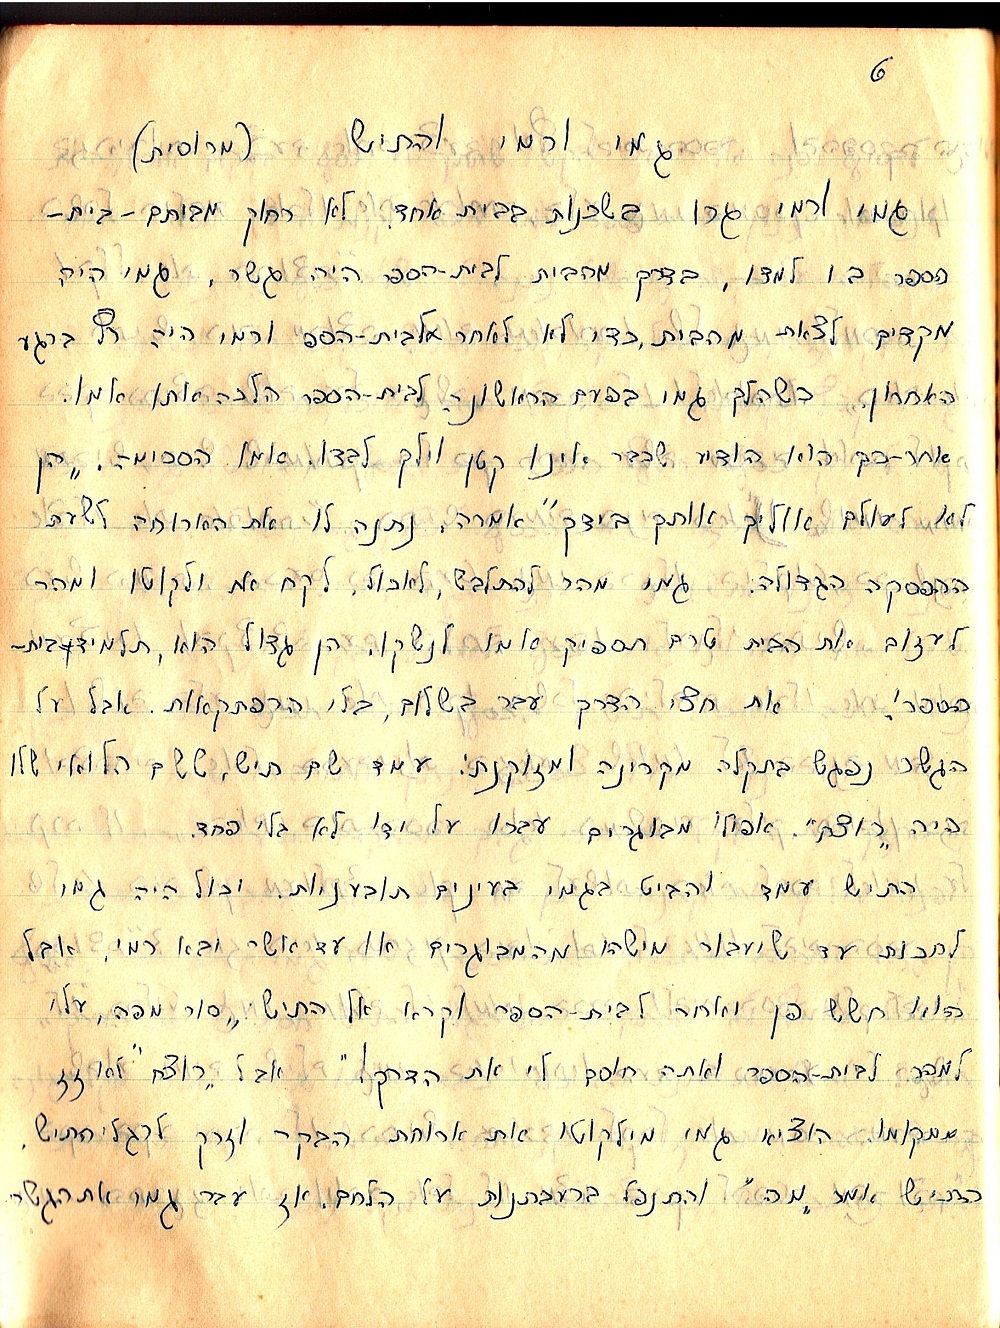 6
גמי ורמי והתיש (מרוסית)
גמי ורמי גרו בשכנות בבית אחד. לא רחוק מביתם - בית-
הספר בו למדו, בדרך מהבית לבית-הספר היה גשר, גמי היה
מקדים לצאת מהבית, כדי לא לאחר לבית-הספר ורמי היה רץ ברגע
האחרון. כשהלך גמי בפעם הראשונה לבית-הספר הלכה אותו אמו.
אחר-כך הוא הודיע שכבר אינו קטן וילך לבדו. אמו הסכימה. „הן
לא לעולם אוליך אותך בידך" אמרה, נתנה לו את הארוחה לשעת
ההפסקה הגדולה. גמי מהר להתלבש, לאכול, לקח את ילקוטו ומהר
לעזוב את הבית טרם תספיק אמו לנשקו. הן גדול הוא, תלמיד בית-
הספר! את חצי הדרך עבר בשלום, בלי הרפתקאות. אבל על
הגשר נפגש בתקלה מקרינה ומזוקנת: עמד שם תיש, ששם הלואי שלו
היה „רוצח". אפילו מבוגרים עברו על ידו לא בלי פחד.
התיש עמד והביט בגמי בעינים תובעניות. יכול היה גמי
לחכות עד שיעבור מישהו מהמבוגרים או עד אשר יבא רמי, אבל
הוא חשש פן יאחר לבית-הספר וקרא אל התיש: „סור מפה, עלי
למהר לבית-הספר ואתה חוסם לי את הדרך!" אבל „רוצח" לא זז
ממקומו. הוציא גמי מילקוטו את ארוחת הבקר וזרק לרגלי התיש.
התיש אמר „מה" והתנפל ברעבתנות על הלחם. אז עבר גמי את הגשר.